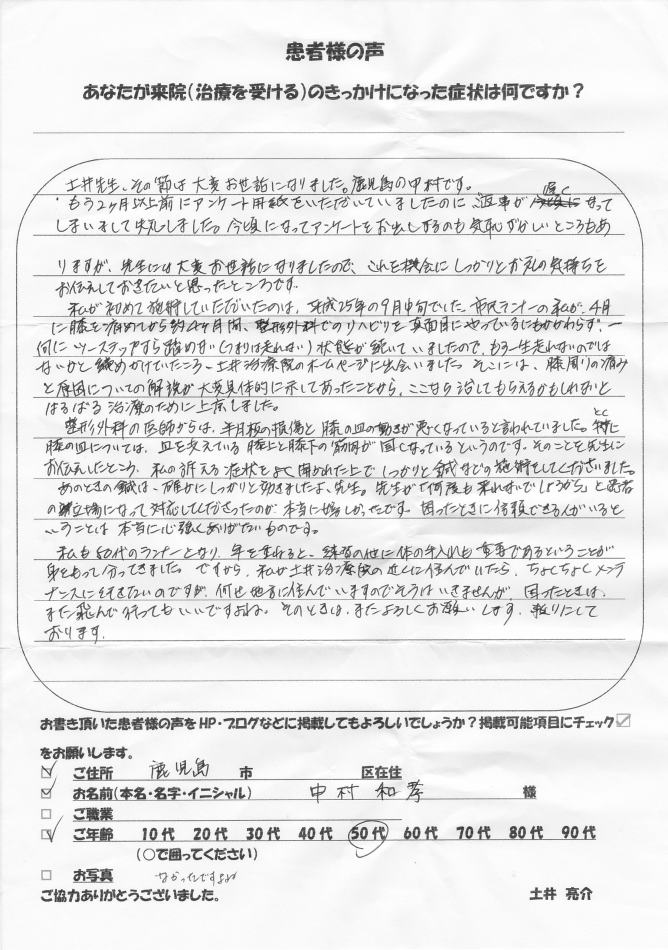 患者様の声
あなたが来院（治療を受ける）のきっかけになった症状は何ですか？
土井先生、その節は大変お世話になりました。鹿児島の中村です。
もう2ヶ月以上前にアンケート用紙をいただいていましたのに、返事が遅くなって
しまいまして失礼しました。今頃になってアンケートをお出しするのも気恥ずかしいところもあ
りますが、先生には大変お世話になりましたので、これを機会にしっかりとお礼の気持ちを
お伝えしておきたいと思ったところです。
私が初めて施術していただいたのは、平成25年の9月中旬でした。市民ランナーの私が、4月
に膝を痛めてから約4ヶ月間、整形外科でのリハビリを真面目にやっているにもかかわらず、一
向にツーステップすら踏めない（つまりは走れない）状態が続いていましたので、もう一生走れないのでは
ないかと諦めかけていたころ、土井治療院のホームページに出会いました。そこには、膝周りの痛み
と原因についての解説が大変具体的に示してあったことから、ここなら治してもらえるかもしれないと
はるばる治療のために上京しました。
整形外科の医師からは、半月板の損傷と膝の皿の動きが悪くなっていると言われていました。特に
膝の皿については、皿を支えている膝上と膝下の筋肉が固くなっているというのです。そのことを先生に
お伝えしたところ、私の訴える症状をよく聞かれた上でしっかりと鍼などの施術をしてくださいました。
あのときの鍼は、確かにしっかりと効きましたよ、先生。先生が「何度も来れないでしょうから」と患者
の立場になって対応してくださったのが本当に嬉しかったです。困ったときに信頼できる人がいると
いうことは本当に心強くありがたいものです。
私も50代のランナーとなり、年を重ねると、練習の他に体の手入れも重要であるということが
身をもって分ってきました。ですから、私が土井治療院の近くに住んでいたら、ちょくちょくメンテ
ナンスに行きたいのですが、何せ地方に住んでいますのでそうはいきませんが、困ったときは、
また飛んで行ってもいいですよね。そのときは、またよろしくお願いします。頼りにして
おります。
お書き頂いた患者様の声をHP・ブログなどに掲載してもよろしいでしょうか？掲載可能項目にチェック☑
をお願いします。
☑ ご住所 鹿児島 市 区在住
☑ お名前（本名・名字・イニシャル） 中村 和孝 様
□ ご職業
☑ ご年齢 10代 20代 30代 40代 50代 60代 70代 80代 90代
（○で囲ってください）
□ お写真 なかったですよね
ご協力ありがとうございました。 土井 亮介